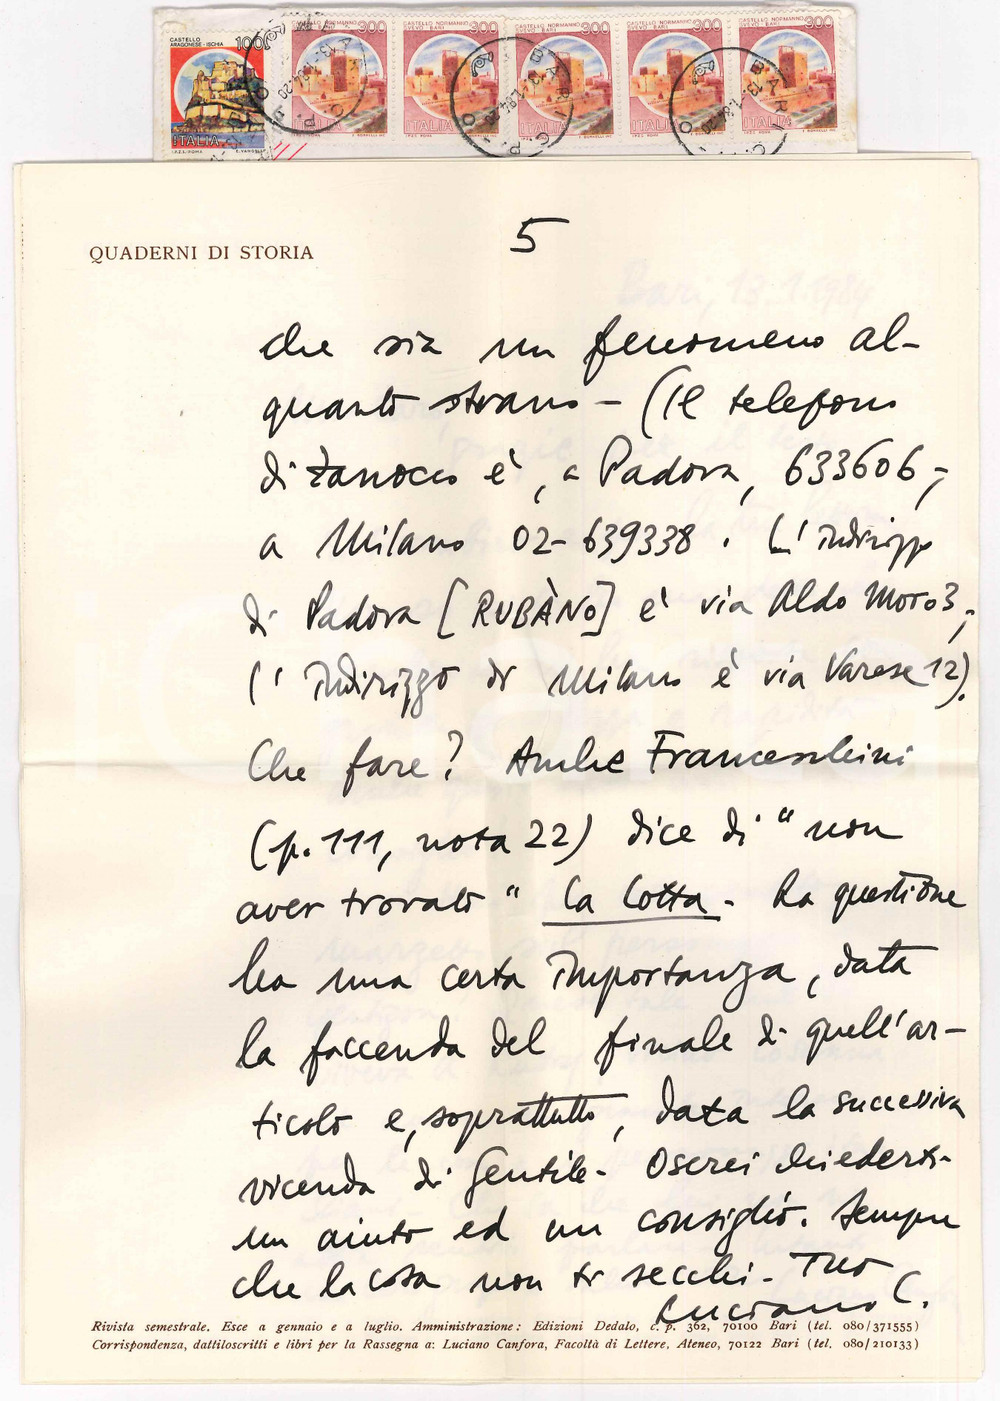 CASTELLO
ARAGONESE - ISCHIA
100
ITALIA
I.P.Z.S. - ROMA
CASTELLO NORMANNO
SVEVO BARI
300
ITALIA
CASTELLO NORMANNO
SVEVO BARI
300
ITALIA
CASTELLO NORMANNO
SVEVO BARI
300
ITALIA
CASTELLO NORMANNO
SVEVO BARI
300
ITALIA
CASTELLO NORMANNO
SVEVO BARI
300
ITALIA
QUADERNI DI STORIA
5
Bari, 13.1.1984
che sia un fenomeno al-
quanto strano - (Il telefono
di Zanocco è, a Padova, 633606,
a Milano 02-639338. L'indirizzo
di Padova [RUBÀNO] è via Aldo Moro 3,
l'indirizzo di Milano è via Varese 12).
Che fare? Anche Franceschini
(p. 111, nota 22) dice di "non
aver trovato" La Lotta. La questione
ha una certa importanza, data
la faccenda del finale di quell'ar-
ticolo e, soprattutto, data la successiva
vicenda di Gentile. Oserei chiederti
un aiuto ed un consiglio. Sempre
che la cosa non ti secchi. Tuo
Luciano C.
Rivista semestrale. Esce a gennaio e a luglio. Amministrazione: Edizioni Dedalo, c. p. 362, 70100 Bari (tel. 080/371555)
Corrispondenza, dattiloscritti e libri per la Rassegna a: Luciano Canfora, Facoltà di Lettere, Ateneo, 70122 Bari (tel. 080/210133)